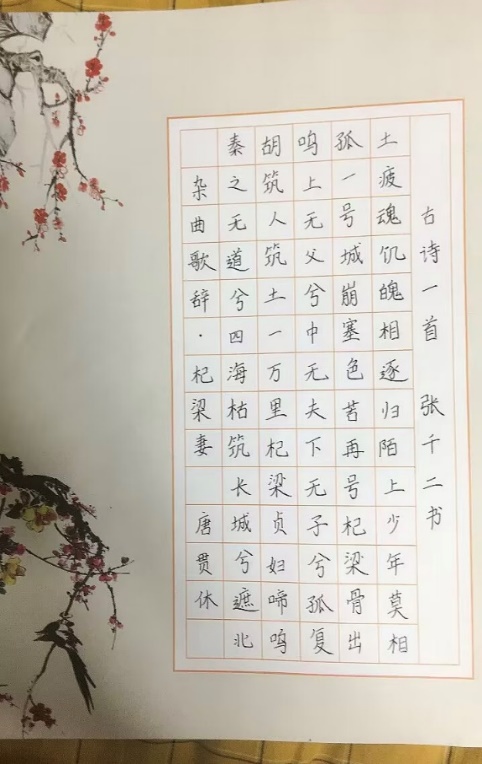 杂曲歌辞·杞梁妻 唐贯休
秦之无道兮四海枯筑长城兮遮北
胡筑人筑土一万里杞梁贞妇啼呜
呜上无父兮中无夫下无子兮孤复
孤一号城崩塞色苦再号杞梁骨出
土疲魂饥魄相逐归陌上少年莫相
古诗一首 张千二书